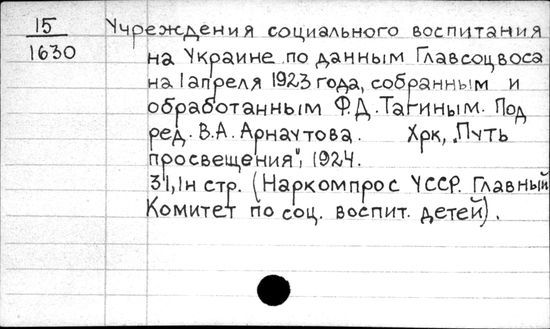 15
1630
Учреждения социального воспитания
на Украине по данным Главсоцвоса
на 1 апреля 1923 года, собранным и
обработанным Ф.Д. Тагиным. Под
ред. В.А. Арнаутова. Хрк, „Путь
просвещения", 1924.
31, 1н стр. (Наркомпрос УССР. Главный
Комитет по соц. воспит. детей).